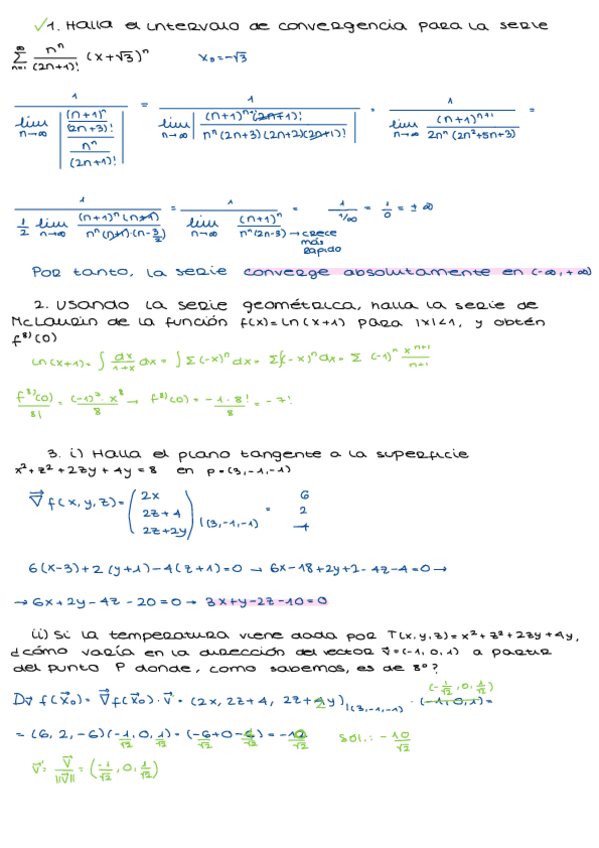 ✓1. Halla el intervalo de convergencia para la serie
∞ Σ n=1 n^n/(2n+1)! (x+√3)^n x₀=-√3
1/(lim n→∞ |((n+1)^n/(2n+3)!)/(n^n/(2n+1)!)|) = 1/(lim n→∞ |(n+1)^(n+1)(2n+1)!/(n^n(2n+3)(2n+2)(2n+1)!)|) = 1/(lim n→∞ (n+1)^(n+1)/(2n^n(2n²+5n+3))) =
1/(1/2 lim n→∞ (n+1)^n(n+1)/(n^n(n+1)·(n-3/2))) = 1/(lim n→∞ (n+1)^n/(n^n(2n-3))) → crece más rápido = 1/(1/∞) = 1/0 = ±∞
Por tanto, la serie converge absolutamente en (-∞,+∞)
2. Usando la serie geométrica, halla la serie de
McLaurin de la función f(x)=ln(x+1) para |x|<1, y obtén
f⁸⁾(0)
ln(x+1)= ∫ dx/(1+x) dx = ∫ Σ(-x)^n dx = Σ∫(-x)^n dx = Σ (-1)^n x^(n+1)/(n+1)
f⁸⁾(0)/8! = (-1)⁷·x⁸/8 → f⁸⁾(0) = -1·8!/8 = -7!
3. i) Halla el plano tangente a la superficie
x²+z²+2zy+4y=8 en p=(3,-1,-1)
∇f(x,y,z)= (2x
2z+4
2z+2y) |(3,-1,-1) = 6
2
-4
6(x-3)+2(y+1)-4(z+1)=0 → 6x-18+2y+2-4z-4=0 →
→ 6x+2y-4z-20=0 → 3x+y-2z-10=0
ii) Si la temperatura viene dada por T(x,y,z)=x²+z²+2zy+4y,
¿cómo varía en la dirección del vector v=(-1,0,1) a partir
del punto P donde, como sabemos, es de 8º?
(-1/√2,0,1/√2)
Dv f(x₀)= ∇f(x₀)·v = (2x, 2z+4, 2z+2y)|(3,-1,-1) · (-1,0,1)=
= (6,2,-6)(-1/√2,0,1/√2) = (-6/√2+0-4/√2) = -10/√2 Sol.: -10/√2
v = v/||v|| = (-1/√2,0,1/√2)